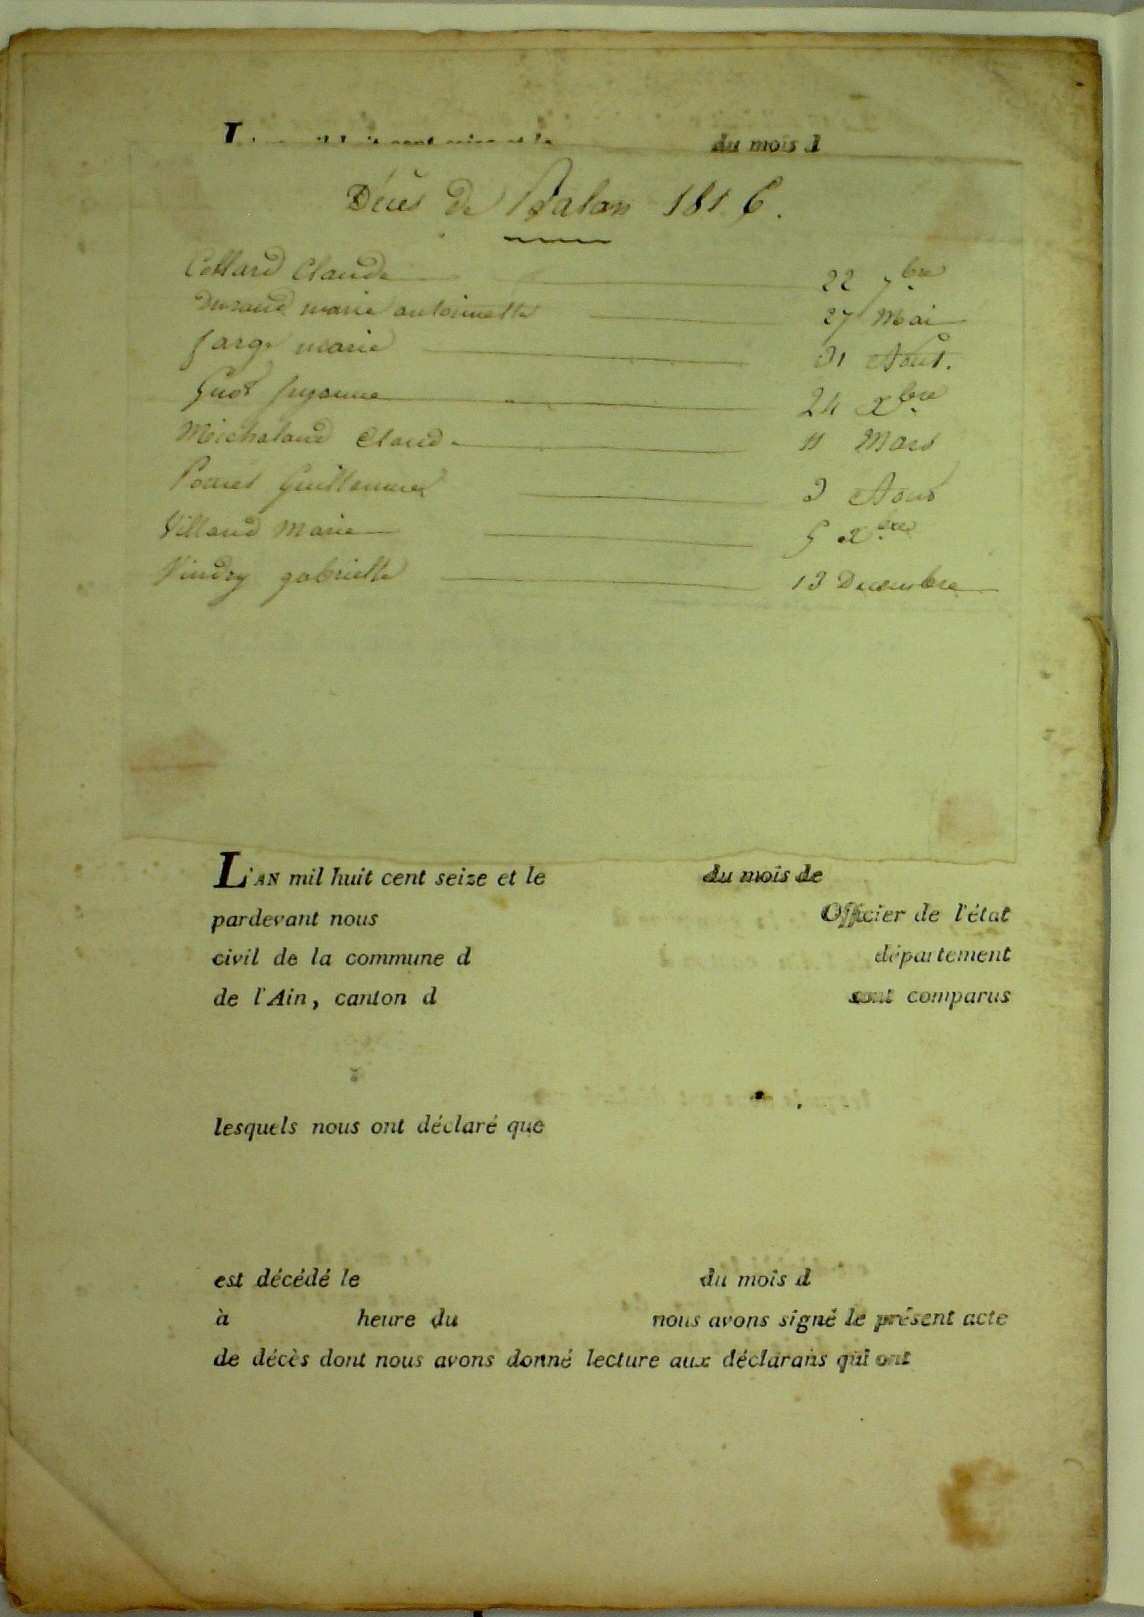 du mois d
Décès de Balan 1816.
Collard Claude 22 7bre
Durand marie antoinette 27 Mai
farge marie 31 Aout.
Guot suzanne 24 Xbre
Michaland Claude 11 Mars
Guillaume 3 Aout
Villand Marie 5 Xbre
Vindry gabrielle 13 Decembre
L'AN mil huit cent seize et le du mois de
pardevant nous Officier de l'état
civil de la commune d département
de l'Ain, canton d sont comparus
lesquels nous ont déclaré que
est décédé le du mois d
à heure du nous avons signé le présent acte
de décès dont nous avons donné lecture aux déclarans qui ont